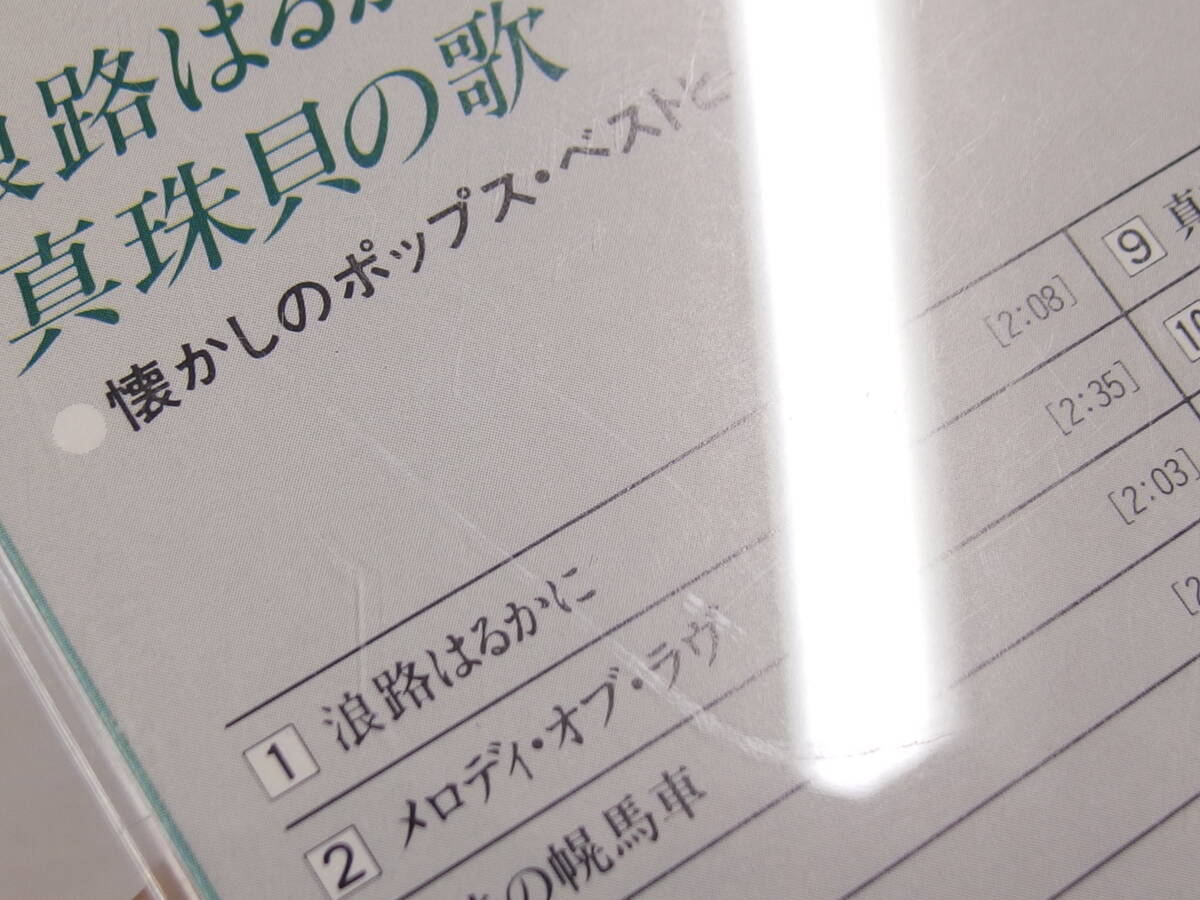 浪路はるか
真珠貝の歌
●懐かしのポップス・ベストと
1 浪路はるかに [2:08]
2 メロディ・オブ・ラヴ [2:35]
の幌馬車 [2:03]
[2
9 真
10